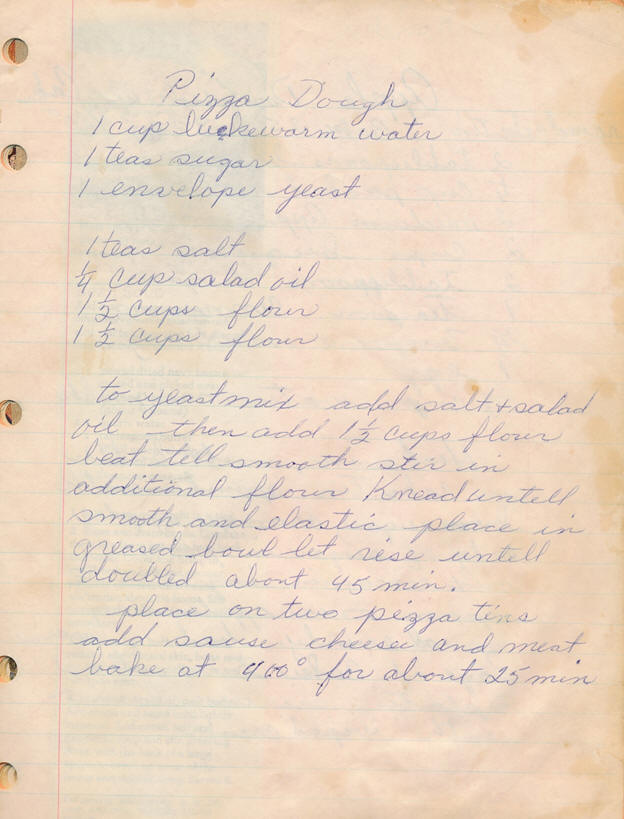 Pizza Dough
1 cup luckewarm water
1 teas sugar
1 envelope yeast
1 teas salt
1/4 cup salad oil
1 1/2 cups flour
1 1/2 cups flour
to yeast mix add salt + salad
oil then add 1 1/2 cups flour
beat tell smooth stir in
additional flour Knead untell
smooth and elastic place in
greased bowl let rise untell
doubled about 45 min.
place on two pizza tins
add sause cheese and meat
bake at 400° for about 25 min